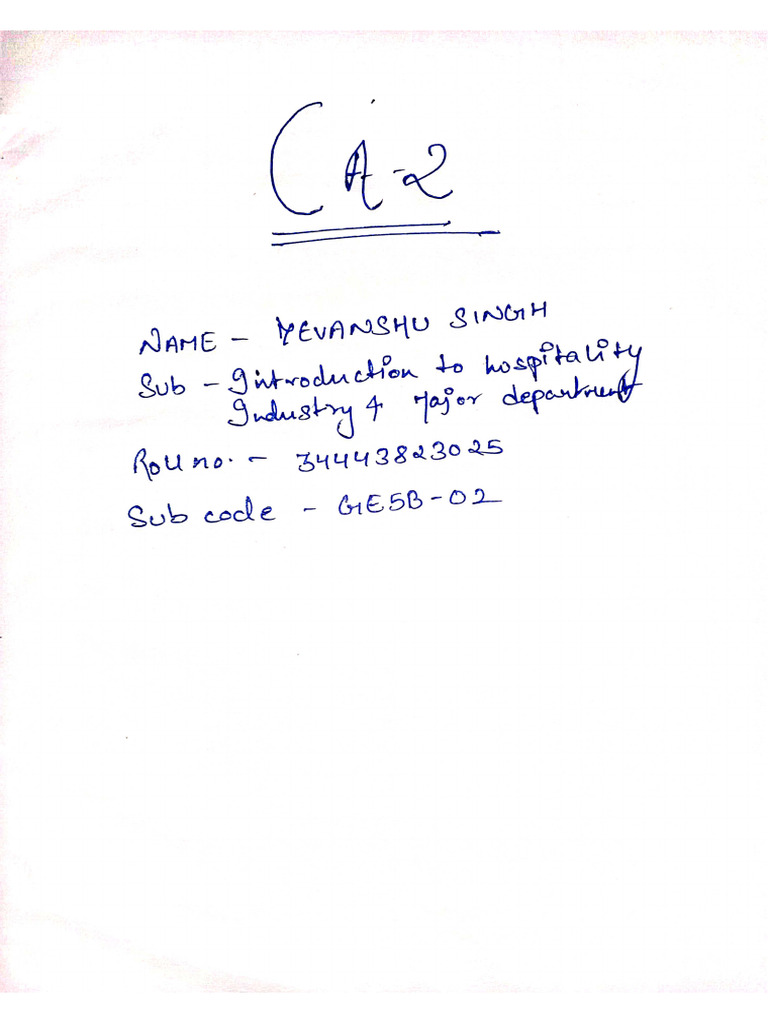 CA-2
NAME - DEVANSHU SINGH
Sub - Introduction to hospitality
Industry & Major department
Roll no. - 34443823025
Sub code - GE5B-02